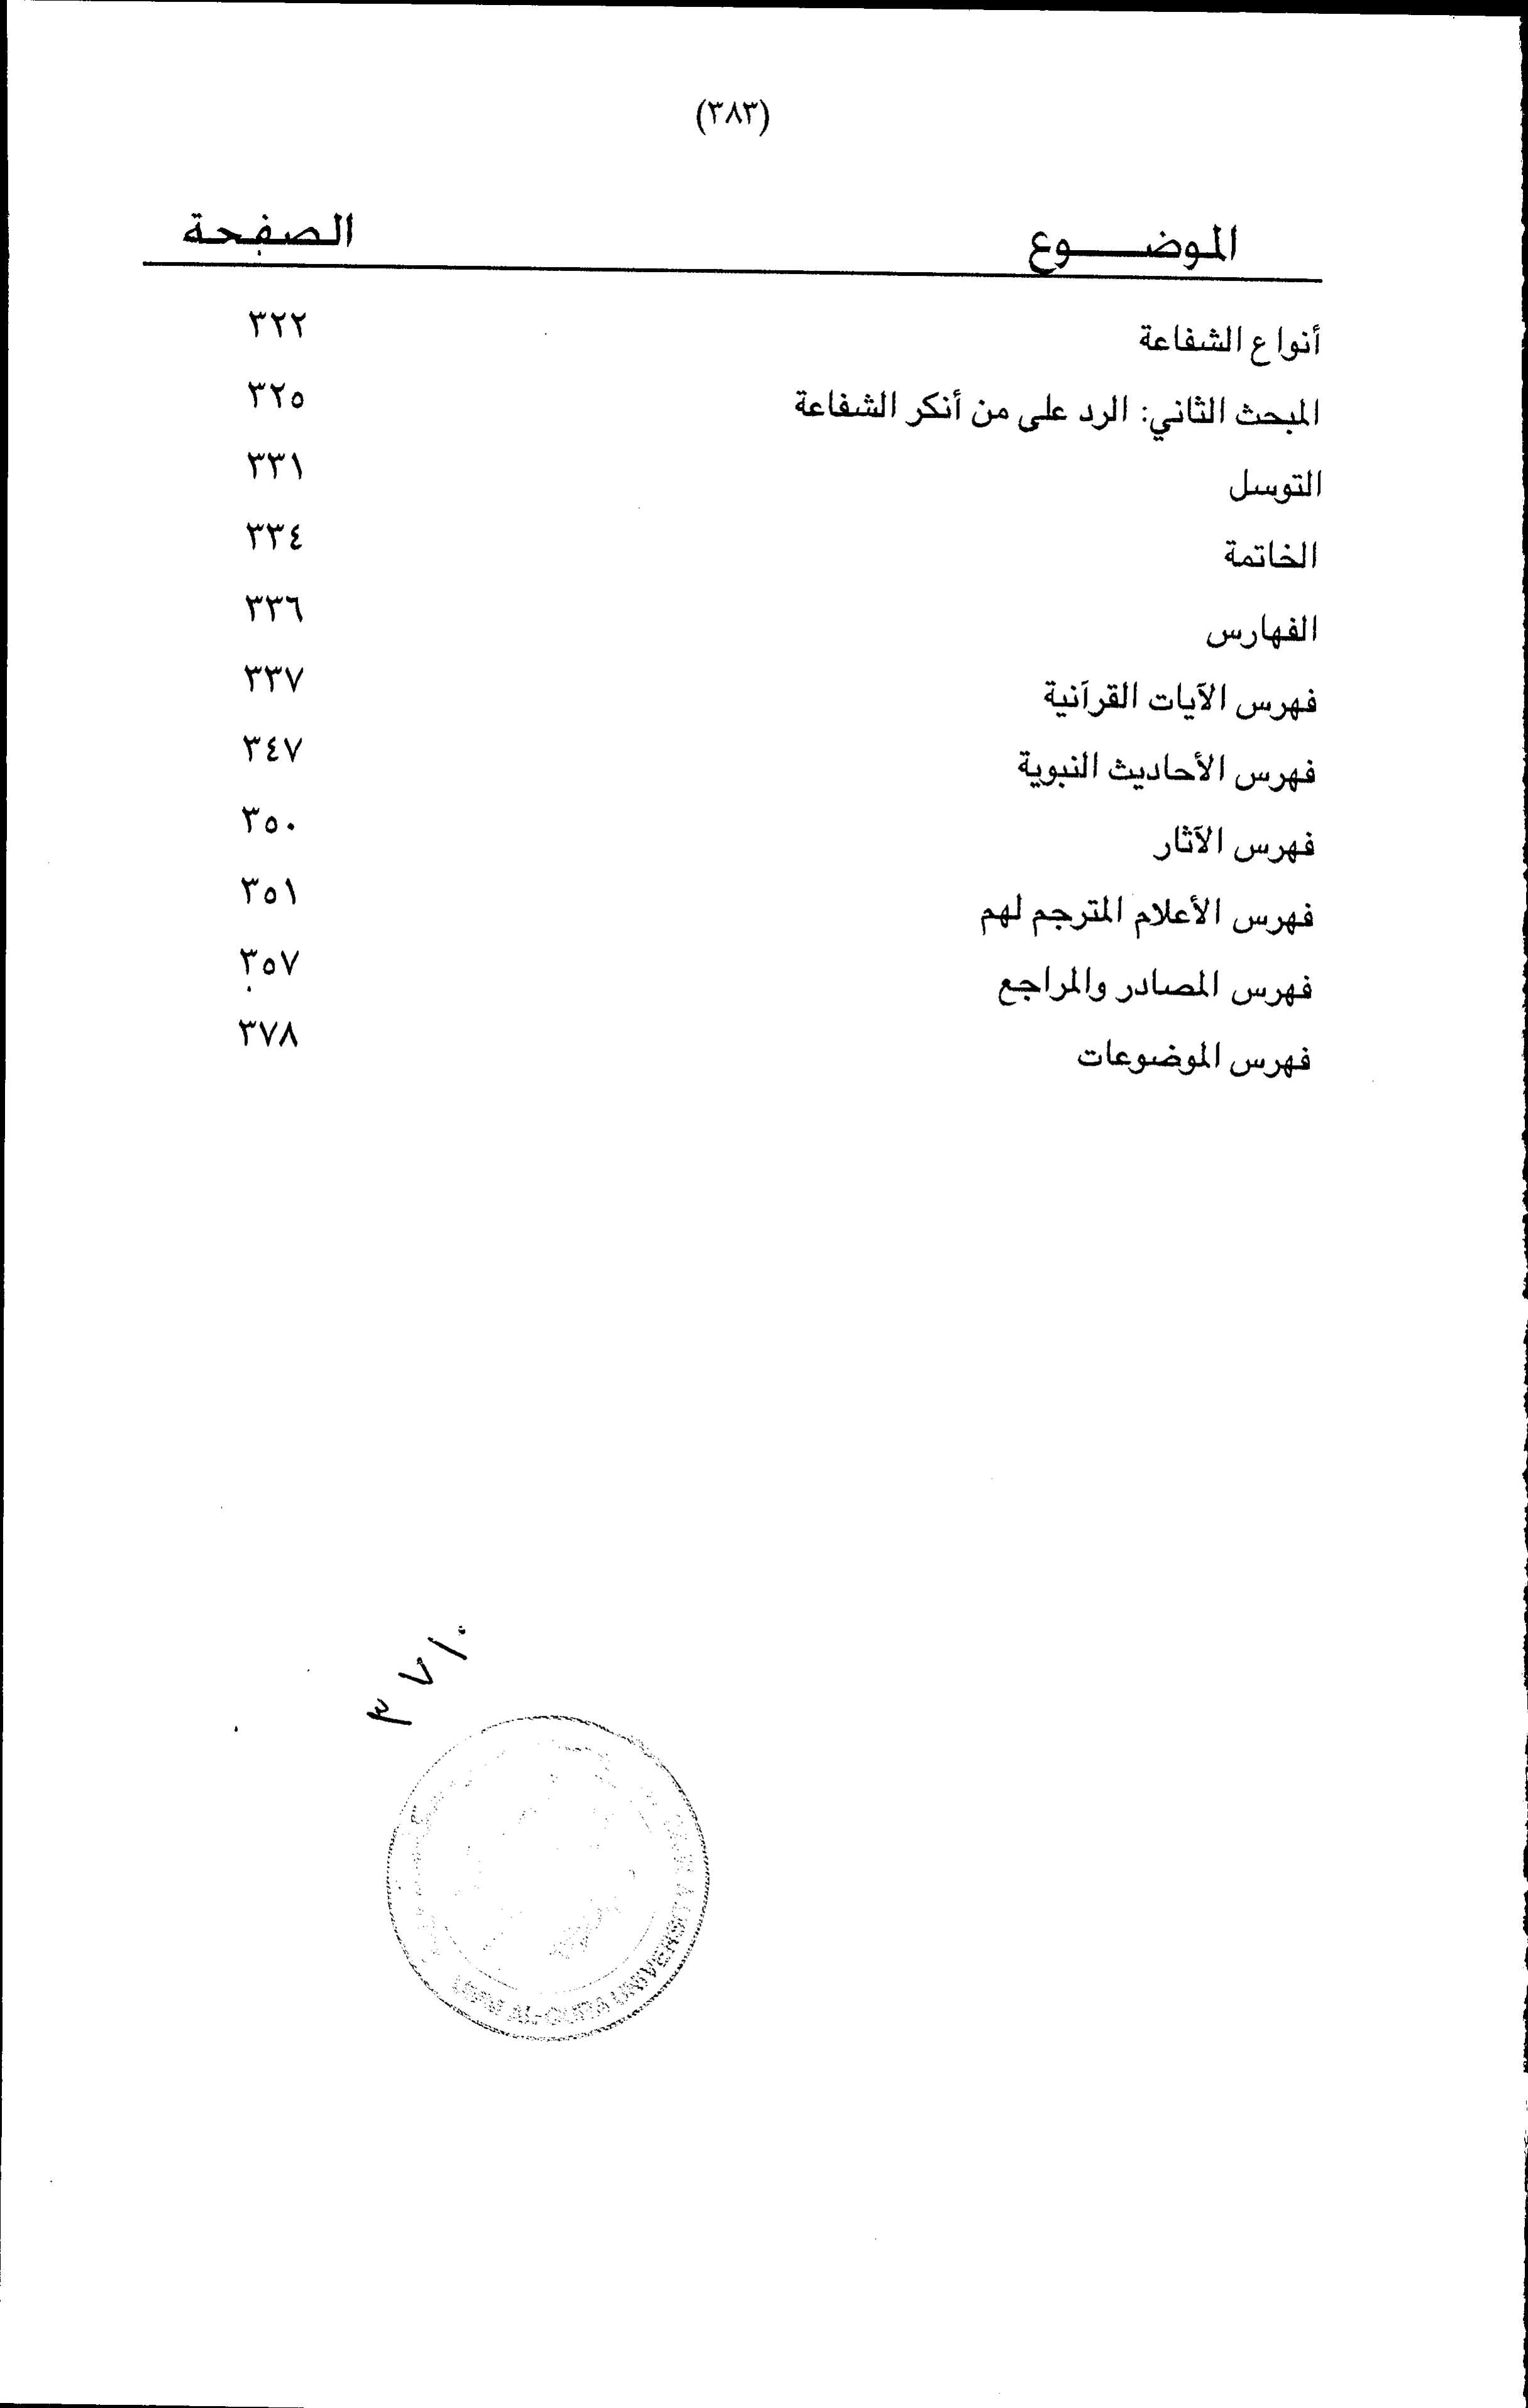 (٣٨٣)
الموضـــــوع الصفحة
أنواع الشفاعة ٣٢٢
المبحث الثاني: الرد على من أنكر الشفاعة ٣٢٥
التوسل ٣٣١
الخاتمة ٣٣٤
الفهارس ٣٣٦
فهرس الآيات القرآنية ٣٣٧
فهرس الأحاديث النبوية ٣٤٧
فهرس الآثار ٣٥٠
فهرس الأعلام المترجم لهم ٣٥١
فهرس المصادر والمراجع ٣٥٧
فهرس الموضوعات ٣٧٨
٣٧١٠
UMM AL-QURA UNIVERSITY